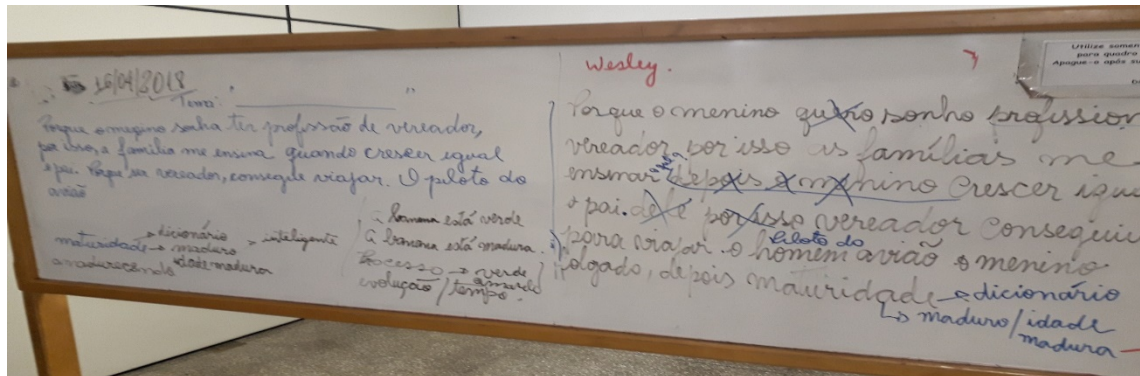 16/04/2018
Tema: " ____________ "
Porque o menino sonha ter profissão de vereador,
por isso, a família me ensina quando crescer igual
o pai. Porque ser vereador, consegue viajar. O piloto do
avião
maturidade → dicionário
→ maduro → inteligente
→ idade madura
amadurecendo
A banana está verde
A banana está madura.
Processo → verde
amarelo
evolução / tempo.
Wesley.
Porque o menino sonho profission
vereador por isso as famílias me
ensinar depois o menino crescer igu
o pai. dele por isso vereador conseguiu
para viajar. o homem piloto do avião o menino
folgado, depois maturidade → dicionário
↳ maduro / idade
madura
Utilize somen
para quadro
Apague-o após su